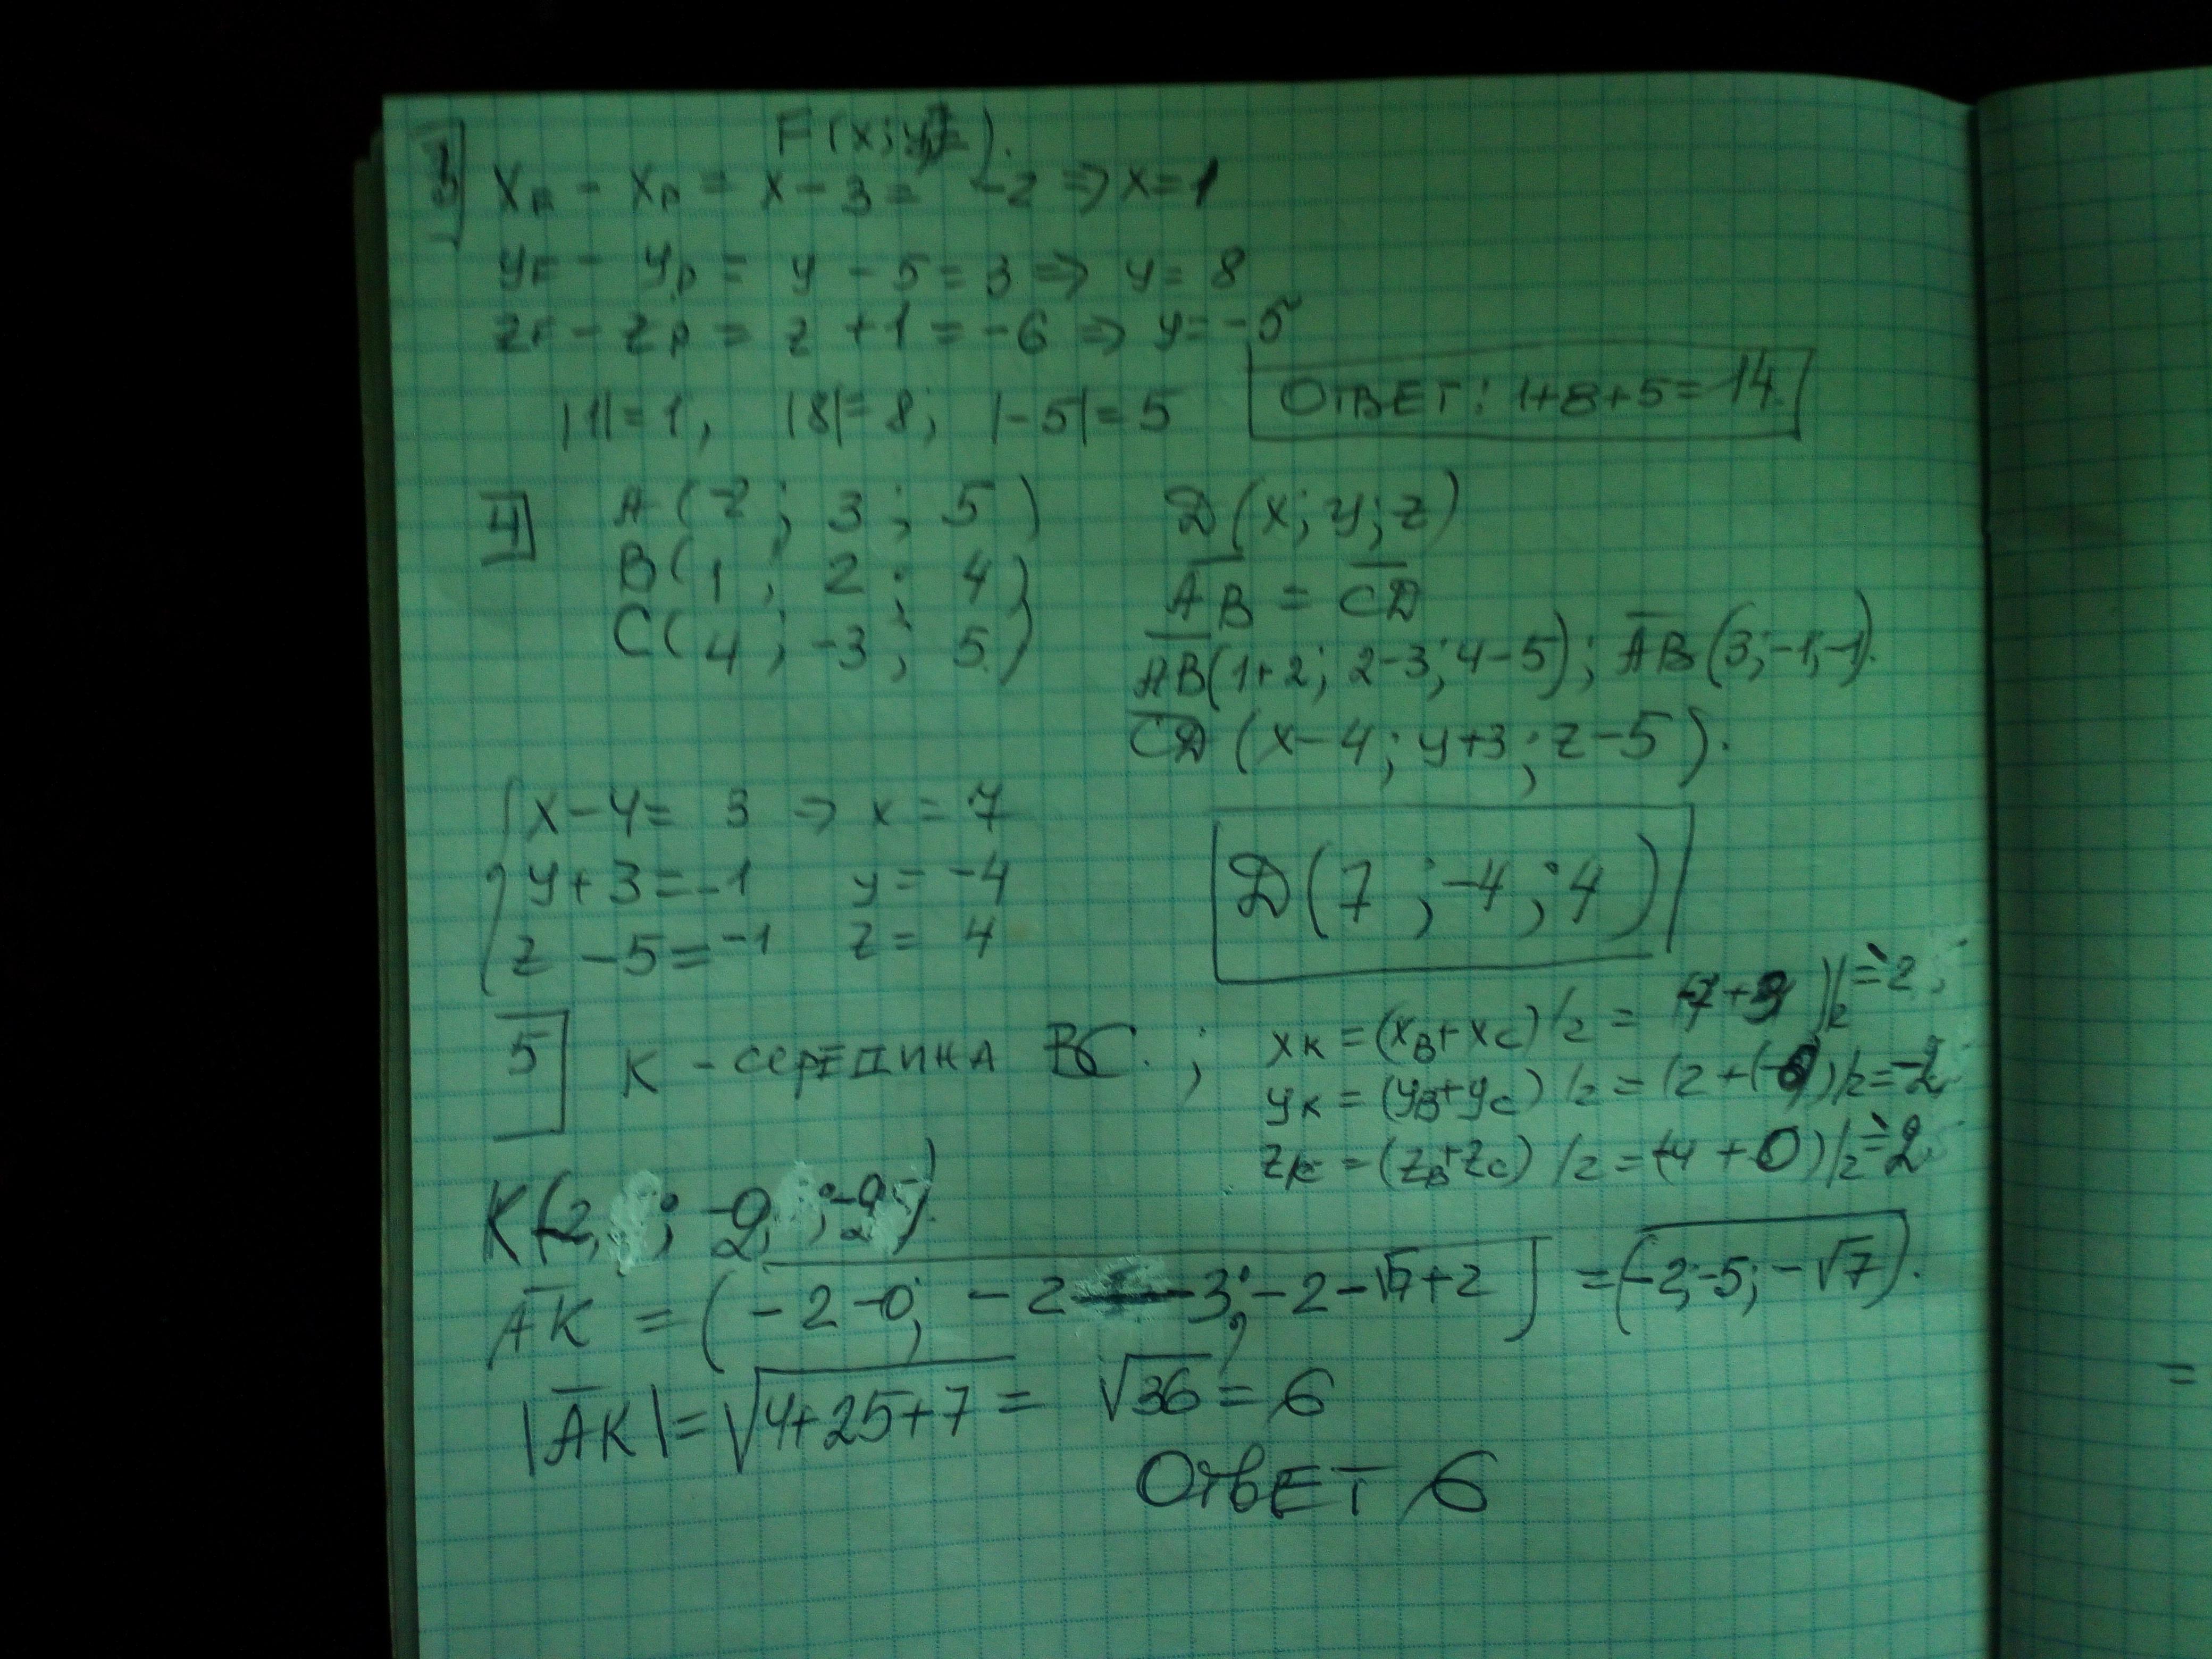 3 F(x; y; z).
x_F - x_P = x - 3 = -2 ⇒ x = 1
y_F - y_P = y - 5 = 3 ⇒ y = 8
z_F - z_P = z + 1 = -6 ⇒ y = -5
|1| = 1, |8| = 8; |-5| = 5 ОТВЕТ: 1+8+5=14.
4 A(-2; 3; 5) D(x; y; z)
B(1; 2; 4) AB = CD
C(4; -3; 5) AB(1+2; 2-3; 4-5); AB(3; -1; -1).
CD(x-4; y+3; z-5).
x-4 = 3 ⇒ x = 7
y+3 = -1 y = -4 D(7; -4; 4)
z-5 = -1 z = 4
5 K - середина BC.; x_K = (x_B+x_C)/2 = )/2 = -2;
y_K = (y_B+y_C)/2 = (2+(-6))/2 = -2
z_K = (z_B+z_C)/2 = (-4+0)/2 = -2
K(-2; -2; -2)
AK = (-2-0; -2-3; -2-√7+2) = (-2; -5; -√7).
|AK| = √4+25+7 = √36 = 6
Ответ 6
=